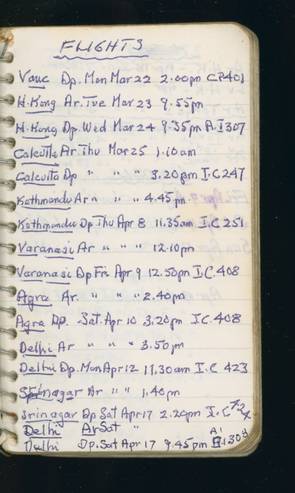 FLIGHTS
Vanc Dp. Mon Mar 22 2.00pm CP401
H.Kong Ar. Tue Mar 23 9.55pm
H.Kong Dp. Wed Mar 24 9.35pm A.I307
Calcutta Ar Thu Mar 25 1.10am
Calcutta Dp " " " 3.20pm I.C247
Kathmandu Ar " " " 4.45pm
Kathmandu Dp Thu Apr 8 11.35am I.C251
Varanasi Ar " " " 12.10pm
Varanasi Dp Fri Apr 9 12.50pm I.C.408
Agra Ar. " " " 2.40pm
Agra Dp. Sat Apr 10 3.20pm IC.408
Delhi Ar " " " 3.50pm
Delhi Dp. Mon Apr 12 11.30am I.C 423
Srinagar Ar " " " 1.40pm
Srinagar Dp Sat Apr 17 2.20pm I.C
Delhi Ar Sat "
Delhi Dp. Sat Apr 17 9.45pm